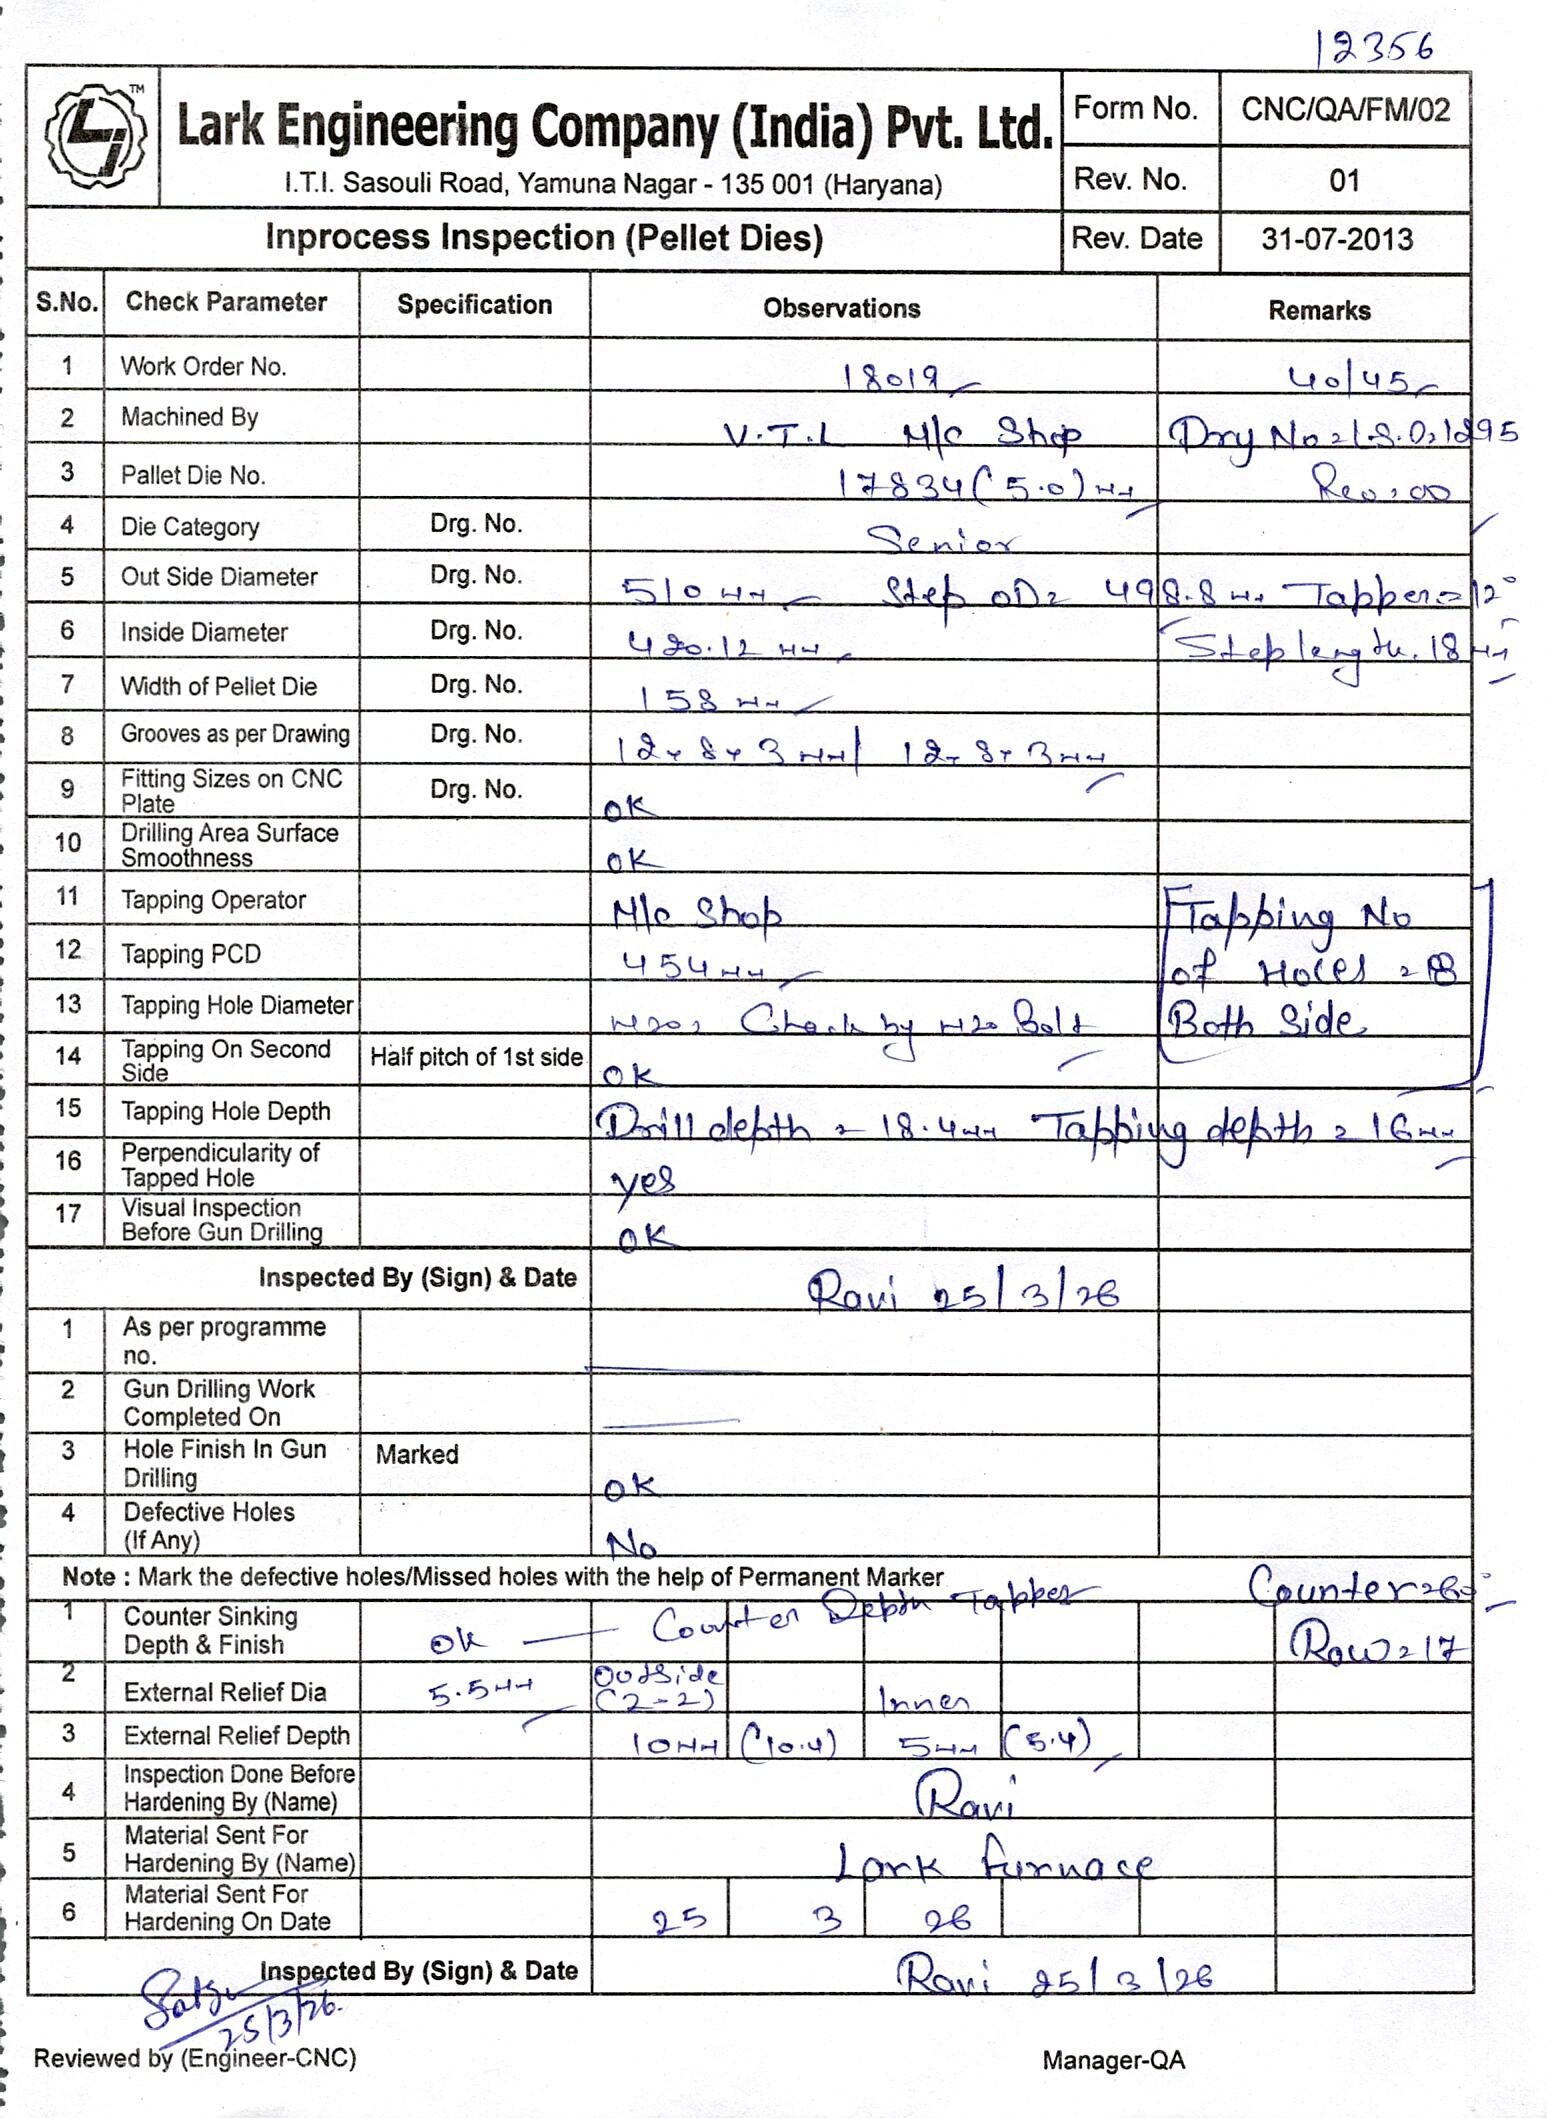 12356
TM
Lark Engineering Company (India) Pvt. Ltd.
I.T.I. Sasouli Road, Yamuna Nagar - 135 001 (Haryana)
Form No. CNC/QA/FM/02
Rev. No. 01
Inprocess Inspection (Pellet Dies) Rev. Date 31-07-2013
S.No. Check Parameter Specification Observations Remarks
1 Work Order No. 18019 40/45
2 Machined By V.T.L M/c Shop Drg No = L.S.O. 1295
3 Pallet Die No. 17834 (5.0) mm Rev = 00
4 Die Category Drg. No. Senior
5 Out Side Diameter Drg. No. 510 mm Step OD = 498.8 mm Tapper = 12°
6 Inside Diameter Drg. No. 420.12 mm Step length. 18 mm
7 Width of Pellet Die Drg. No. 158 mm
8 Grooves as per Drawing Drg. No. 12 x 8 x 3 mm / 12 x 8 x 3 mm
9 Fitting Sizes on CNC Plate Drg. No. OK
10 Drilling Area Surface Smoothness OK
11 Tapping Operator M/c Shop Tapping No
12 Tapping PCD 454 mm of Holes = 8
13 Tapping Hole Diameter M20 = Check by M20 Bolt Both Side
14 Tapping On Second Side Half pitch of 1st side OK
15 Tapping Hole Depth Drill depth = 18.4 mm Tapping depth = 16 mm
16 Perpendicularity of Tapped Hole yes
17 Visual Inspection Before Gun Drilling OK
Inspected By (Sign) & Date Ravi 25/3/26
1 As per programme no.
2 Gun Drilling Work Completed On
3 Hole Finish In Gun Drilling Marked OK
4 Defective Holes (If Any) No
Note : Mark the defective holes/Missed holes with the help of Permanent Marker
Counter = 60°
1 Counter Sinking Depth & Finish OK — Counter Depth Tapper Row = 17
2 External Relief Dia 5.5 mm Outside (2-2) Inner
3 External Relief Depth 10 mm (10.4) 5 mm (5.4)
4 Inspection Done Before Hardening By (Name) Ravi
5 Material Sent For Hardening By (Name) Lark furnace
6 Material Sent For Hardening On Date 25 3 26
Inspected By (Sign) & Date Ravi 25/3/26
25/3/26.
Reviewed by (Engineer-CNC) Manager-QA